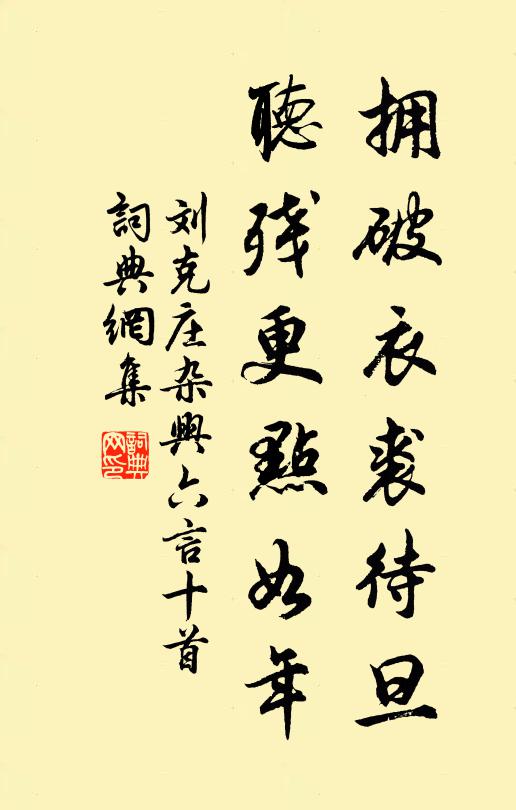 拥破衣裘待旦
聽残更點如年
刘克庄杂興六言十首
詞典網集
詞典網印